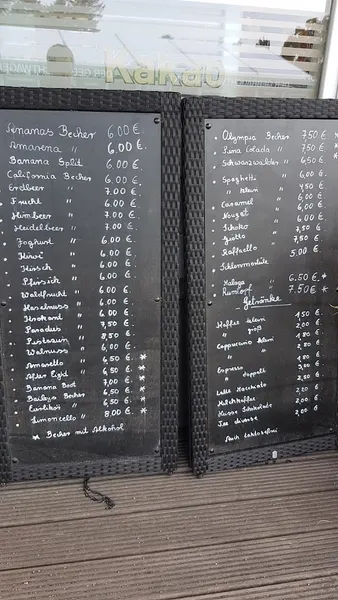 Kakao
Ananas Becher 6.00 €.
Amarena " 6,00 €.
Banana Split 6,00 €.
California Becher 6,00 €.
Erdbeer " 7.00 €.
Frucht " 6.00 €.
Himbeer " 7.00 €.
Heidelbeer " 7.00 €.
Joghurt " 6,00 €.
Kiwi " 6.00 €
Kirsch " 6.00 €.
Pfirsich " 6,00 €.
Waldfrucht " 6.00 €.
Haselnuss " 6.00 €.
Krokant " 6,00 €.
Paradies " 7,50 €.
Pistazien " 8,50 €.
Walnuss " 6,00 €.
Amaretto " 6,50 €. *
After Eight " 6,50 €. *
Banana Boot 7,00 €. *
Baileys Becher 6,50 €. *
Eierlikör " 6,50 €. *
Limoncello " 8,00 €. *
* Becher mit Alkohol
Olympia Becher 7,50 €.
Pina Colada " 7.50 €
Schwarzwälder " 6,50 €
Spaghetti " 6,00 €
" klein 4,50 €
Caramel " 6,00 €
Nougat " 6,00 €
Schoko " 7,50 €
Giotto " 7,50 €
Raffaello 5,00 €.
Schlemmertüte
Malaga " 6.50 €. *
Rumtopf " 7.50 €. *
Getränke
Kaffee klein
" groß
Cappuccino klein
" "
Espresso
" doppelt
Latte Macchiato
Milchkaffee
Heisse Schokolade
Tee diverse
Auch laktosefrei